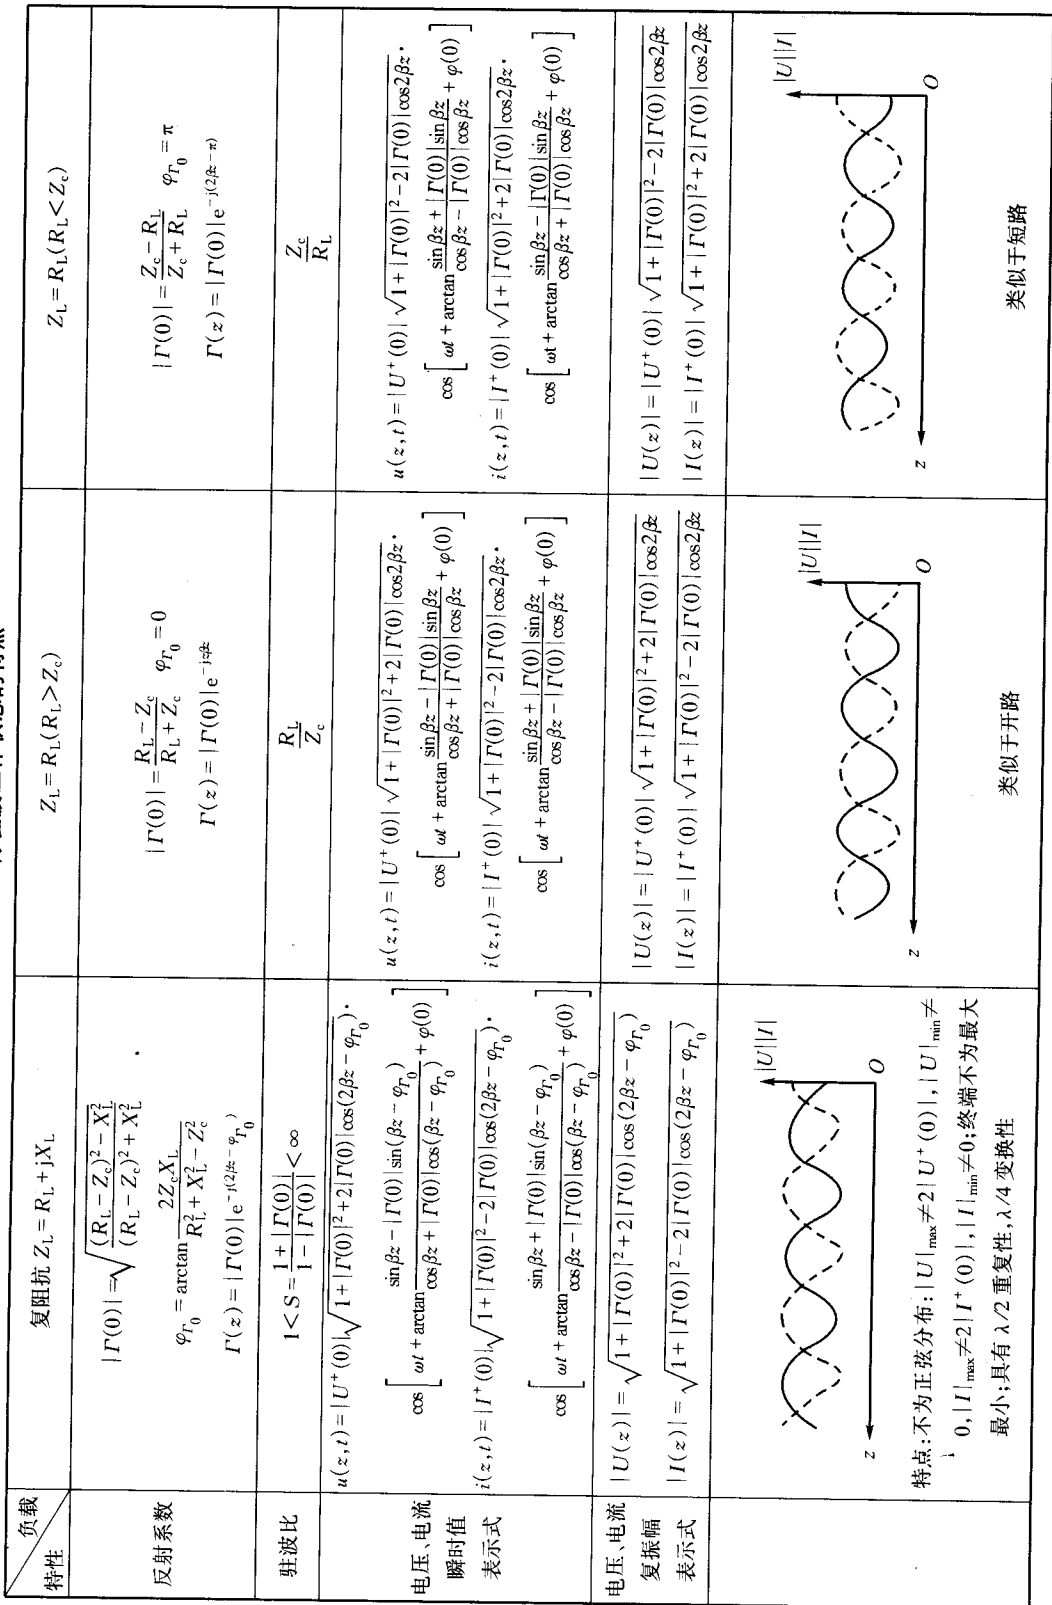 负载
特性
复阻抗 Z_L=R_L+jX_L
Z_L=R_L(R_L>Z_c)
Z_L=R_L(R_L<Z_c)
反射系数
|Γ(0)|=√((R_L-Z_c)²-X_L²)/((R_L-Z_c)²+X_L²)
φ_Γ0=arctan 2Z_cX_L/(R_L²+X_L²-Z_c²)
Γ(z)=|Γ(0)|e^-j(2βz-φ_Γ0)
|Γ(0)|=(R_L-Z_c)/(R_L+Z_c) φ_Γ0=0
Γ(z)=|Γ(0)|e^-j2βz
|Γ(0)|=(Z_c-R_L)/(Z_c+R_L) φ_Γ0=π
Γ(z)=|Γ(0)|e^-j(2βz-π)
驻波比
1<S=(1+|Γ(0)|)/(1-|Γ(0)|)<∞
R_L/Z_c
Z_c/R_L
电压、电流
瞬时值
表示式
u(z,t)=|U⁺(0)|√(1+|Γ(0)|²+2|Γ(0)|cos(2βz-φ_Γ0))·
cos[ωt+arctan (sinβz-|Γ(0)|sin(βz-φ_Γ0))/(cosβz+|Γ(0)|cos(βz-φ_Γ0))+φ(0)]
i(z,t)=|I⁺(0)|√(1+|Γ(0)|²-2|Γ(0)|cos(2βz-φ_Γ0))·
cos[ωt+arctan (sinβz+|Γ(0)|sin(βz-φ_Γ0))/(cosβz-|Γ(0)|cos(βz-φ_Γ0))+φ(0)]
u(z,t)=|U⁺(0)|√(1+|Γ(0)|²+2|Γ(0)|cos2βz)·
cos[ωt+arctan (sinβz-|Γ(0)|sinβz)/(cosβz+|Γ(0)|cosβz)+φ(0)]
i(z,t)=|I⁺(0)|√(1+|Γ(0)|²-2|Γ(0)|cos2βz)·
cos[ωt+arctan (sinβz+|Γ(0)|sinβz)/(cosβz-|Γ(0)|cosβz)+φ(0)]
u(z,t)=|U⁺(0)|√(1+|Γ(0)|²-2|Γ(0)|cos2βz)·
cos[ωt+arctan (sinβz+|Γ(0)|sinβz)/(cosβz-|Γ(0)|cosβz)+φ(0)]
i(z,t)=|I⁺(0)|√(1+|Γ(0)|²+2|Γ(0)|cos2βz)·
cos[ωt+arctan (sinβz-|Γ(0)|sinβz)/(cosβz+|Γ(0)|cosβz)+φ(0)]
电压、电流
复振幅
表示式
|U(z)|=√(1+|Γ(0)|²+2|Γ(0)|cos(2βz-φ_Γ0))
|I(z)|=√(1+|Γ(0)|²-2|Γ(0)|cos(2βz-φ_Γ0))
|U(z)|=|U⁺(0)|√(1+|Γ(0)|²+2|Γ(0)|cos2βz)
|I(z)|=|I⁺(0)|√(1+|Γ(0)|²-2|Γ(0)|cos2βz)
|U(z)|=|U⁺(0)|√(1+|Γ(0)|²-2|Γ(0)|cos2βz)
|I(z)|=|I⁺(0)|√(1+|Γ(0)|²+2|Γ(0)|cos2βz)
|U||I|
z
O
特点:不为正弦分布:|U|max≠2|U⁺(0)|,|U|min≠
0,|I|max≠2|I⁺(0)|,|I|min≠0;终端不为最大
最小;具有λ/2重复性,λ/4变换性
|U||I|
z
O
类似于开路
|U||I|
z
O
类似于短路